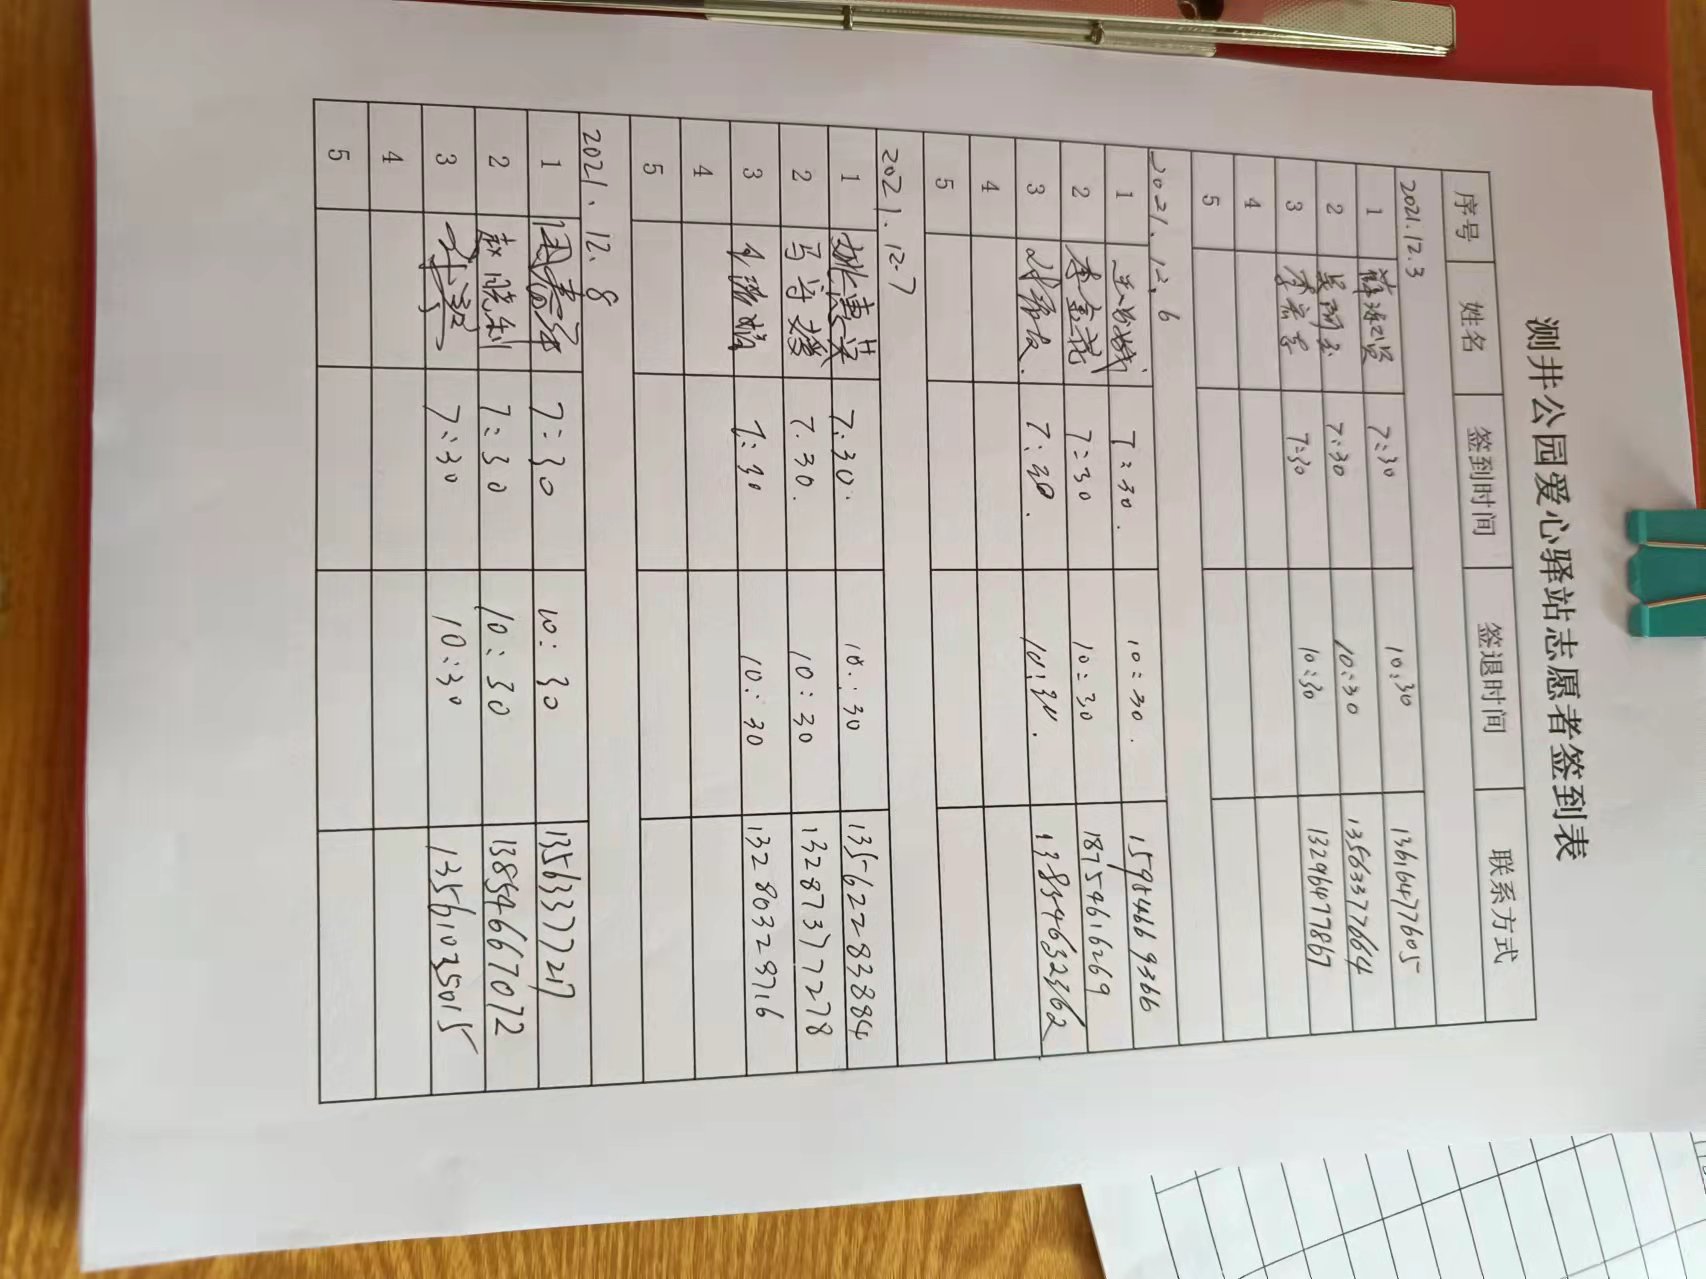 测井公园爱心驿站志愿者签到表
序号 姓名 签到时间 签退时间 联系方式
2021.12.3
1 7:30 10:30 13616477605
2 7:30 10:30 13563377664
3 7:30 10:30 13296477867
4
5
2021.12.6
1 7:30. 10:30.
2 李金花 7:30 10:30 18754616269
3 7:30. 10:30. 13854632362
4
5
2021.12.7
1 姚惠英 7:30. 10:30 13562283884
2 马守媛 7.30. 10:30 13287377278
3 7:30 10:30 13280328716
4
5
2021.12.8
1 7:30 10:30 13563377217
2 赵晓利 7:30 10:30 13854667072
3 7:30 10:30 13561035015
4
5